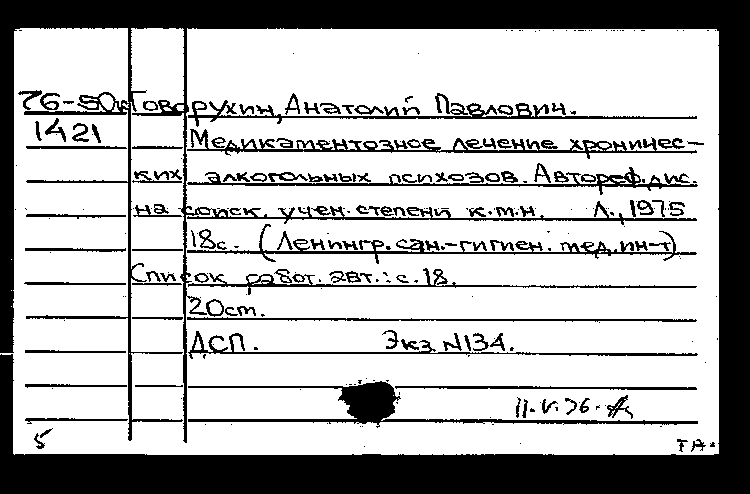 76-50к Говорухин, Анатолий Павлович.
1421 Медикаментозное лечение хроничес-
ких алкогольных психозов. Автореф. дис.
на соиск. учен. степени к.м.н. Л., 1975
18с. (Ленингр. сан.-гигиен. мед. ин-т)
Список работ. авт.: с. 18.
20см.
ДСП. Экз. N134.
11.V.76.
5 ТА.